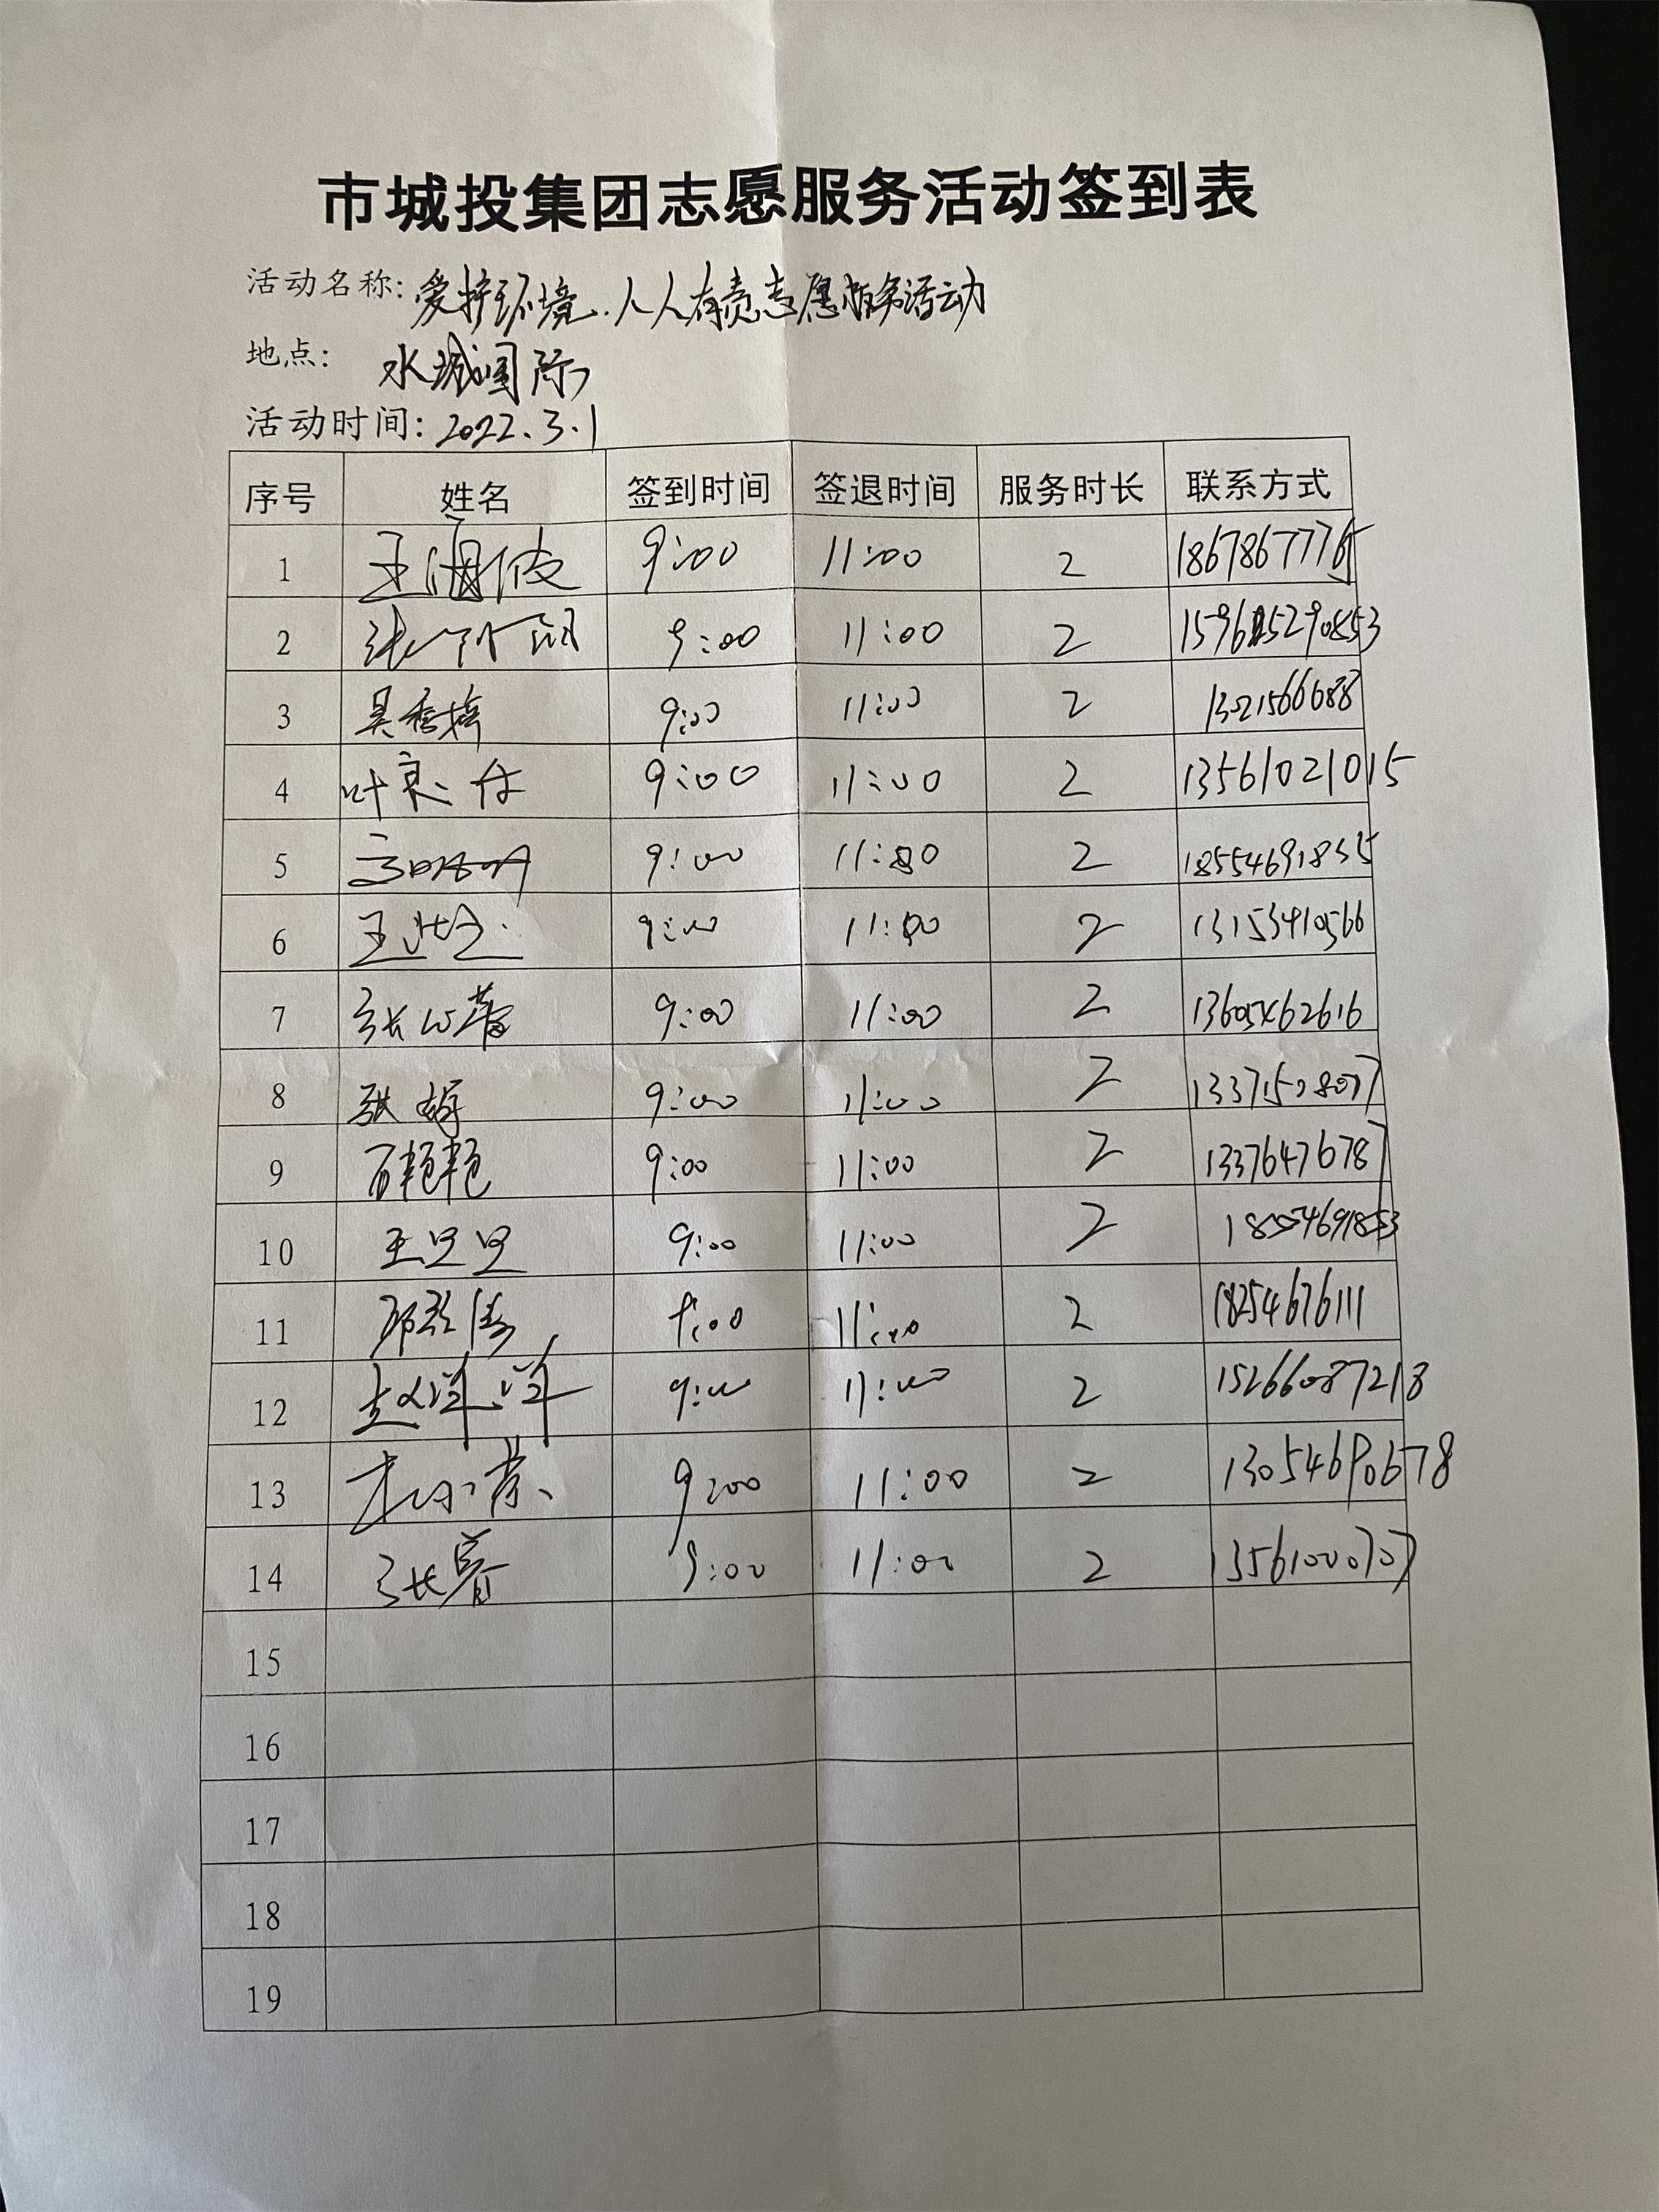 市城投集团志愿服务活动签到表
活动名称: 爱护环境.人人有责志愿服务活动
地点: 水城国际
活动时间: 2022.3.1
序号 姓名 签到时间 签退时间 服务时长 联系方式
1 王海波 9:00 11:00 2 18678677765
2 9:00 11:00 2
3 吴秀梅 9:00 11:00 2 13021566688
4 9:00 11:00 2 13561021015
5 9:00 11:00 2 18554691835
6 9:00 11:00 2 13153410566
7 张心蕾 9:00 11:00 2 13605462616
8 9:00 11:00 2 13371508077
9 石艳艳 9:00 11:00 2 13376476787
10 王旦旦 9:00 11:00 2 18554691853
11 9:00 11:00 2 18254676111
12 赵洋洋 9:00 11:00 2 15266087218
13 9:00 11:00 2 13054690678
14 9:00 11:00 2 13561000707
15
16
17
18
19